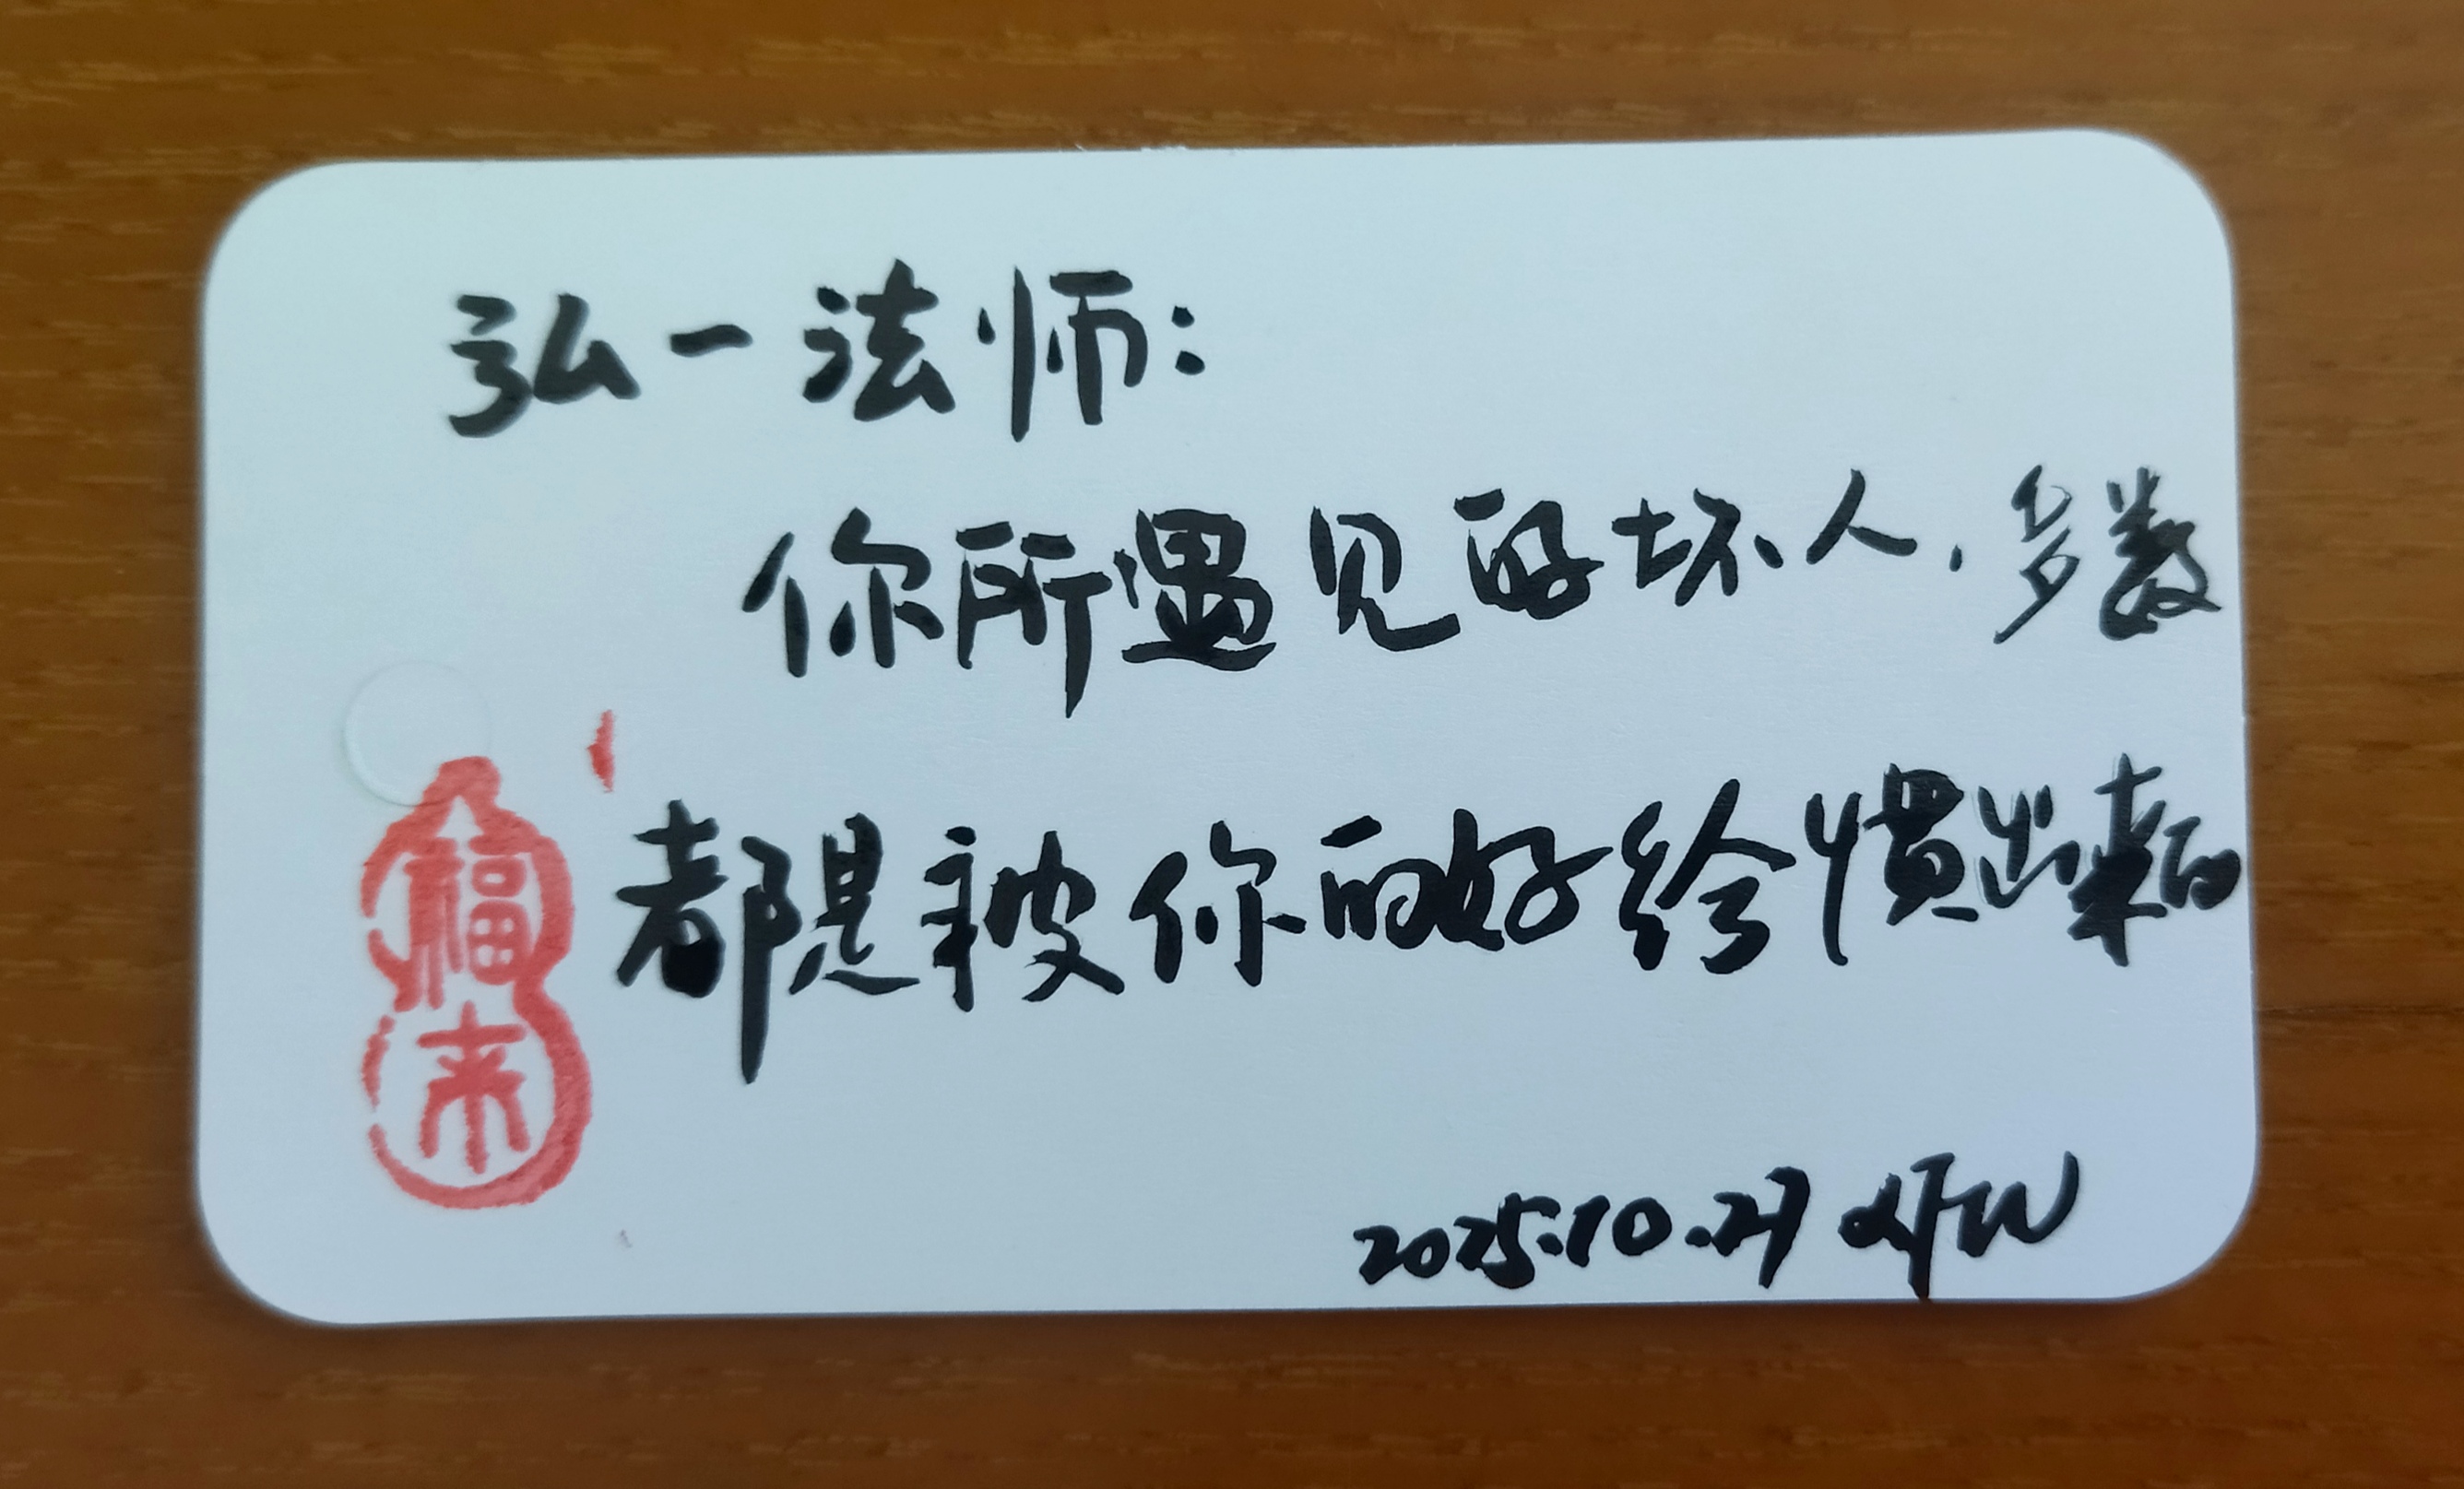 弘一法师：
你所遇见的坏人，多数
都是被你的好给惯出来的
福来
2025.10.27